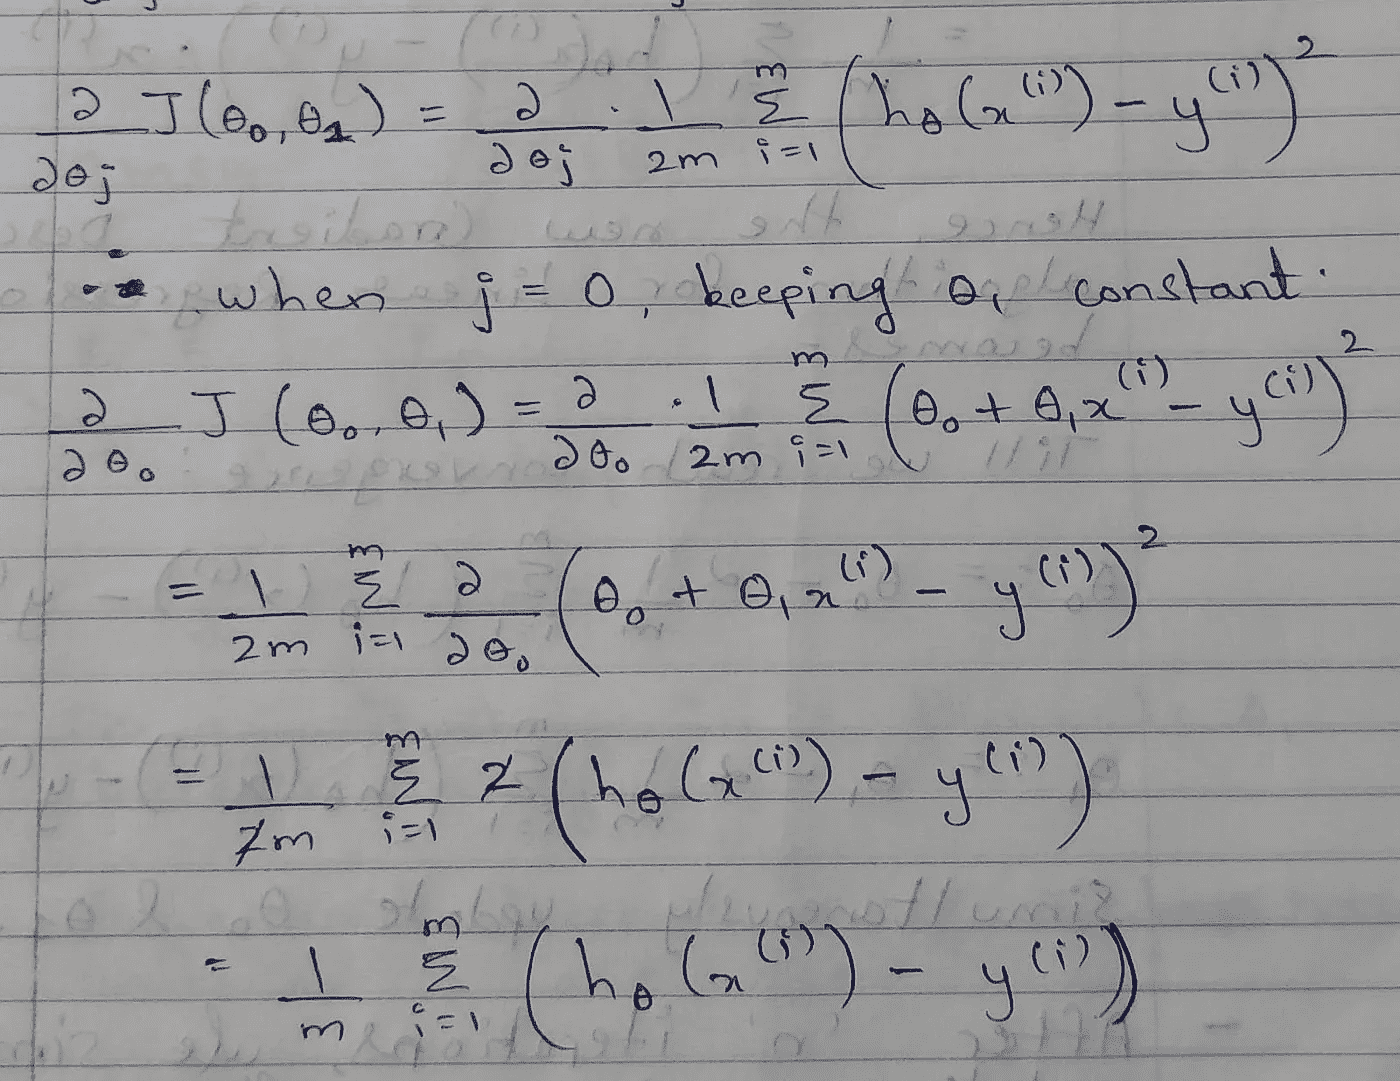 ∂/∂θj J(θ0, θ1) = ∂/∂θj · 1/2m Σ_{i=1}^{m} (hθ(x^(i)) − y^(i))^2
when j = 0, keeping θ1 constant.
∂/∂θ0 J(θ0, θ1) = ∂/∂θ0 · 1/2m Σ_{i=1}^{m} (θ0 + θ1x^(i) − y^(i))^2
= 1/2m Σ_{i=1}^{m} ∂/∂θ0 (θ0 + θ1x^(i) − y^(i))^2
= 1/2m Σ_{i=1}^{m} 2 (hθ(x^(i)) − y^(i))
= 1/m Σ_{i=1}^{m} (hθ(x^(i)) − y^(i))